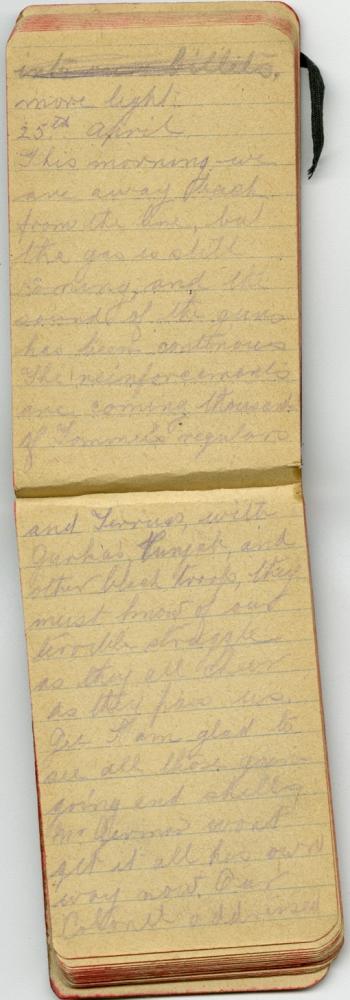 into our billets,
more light.
25th April
This morning we
are away back
from the line, but
the gas is still
coming, and the
sound of the guns
has been continous
The reinforcements
are coming thousands
of Tommies regulars
and Terriers, with
Gurkas, Punjab, and
other black troops, they
must know of our
terrible struggle
as they all cheer
as they pass us.
Gee I am glad to
see all those guns
going and shells,
Mr German wont
get it all his own
way now. Our
Colonel addressed